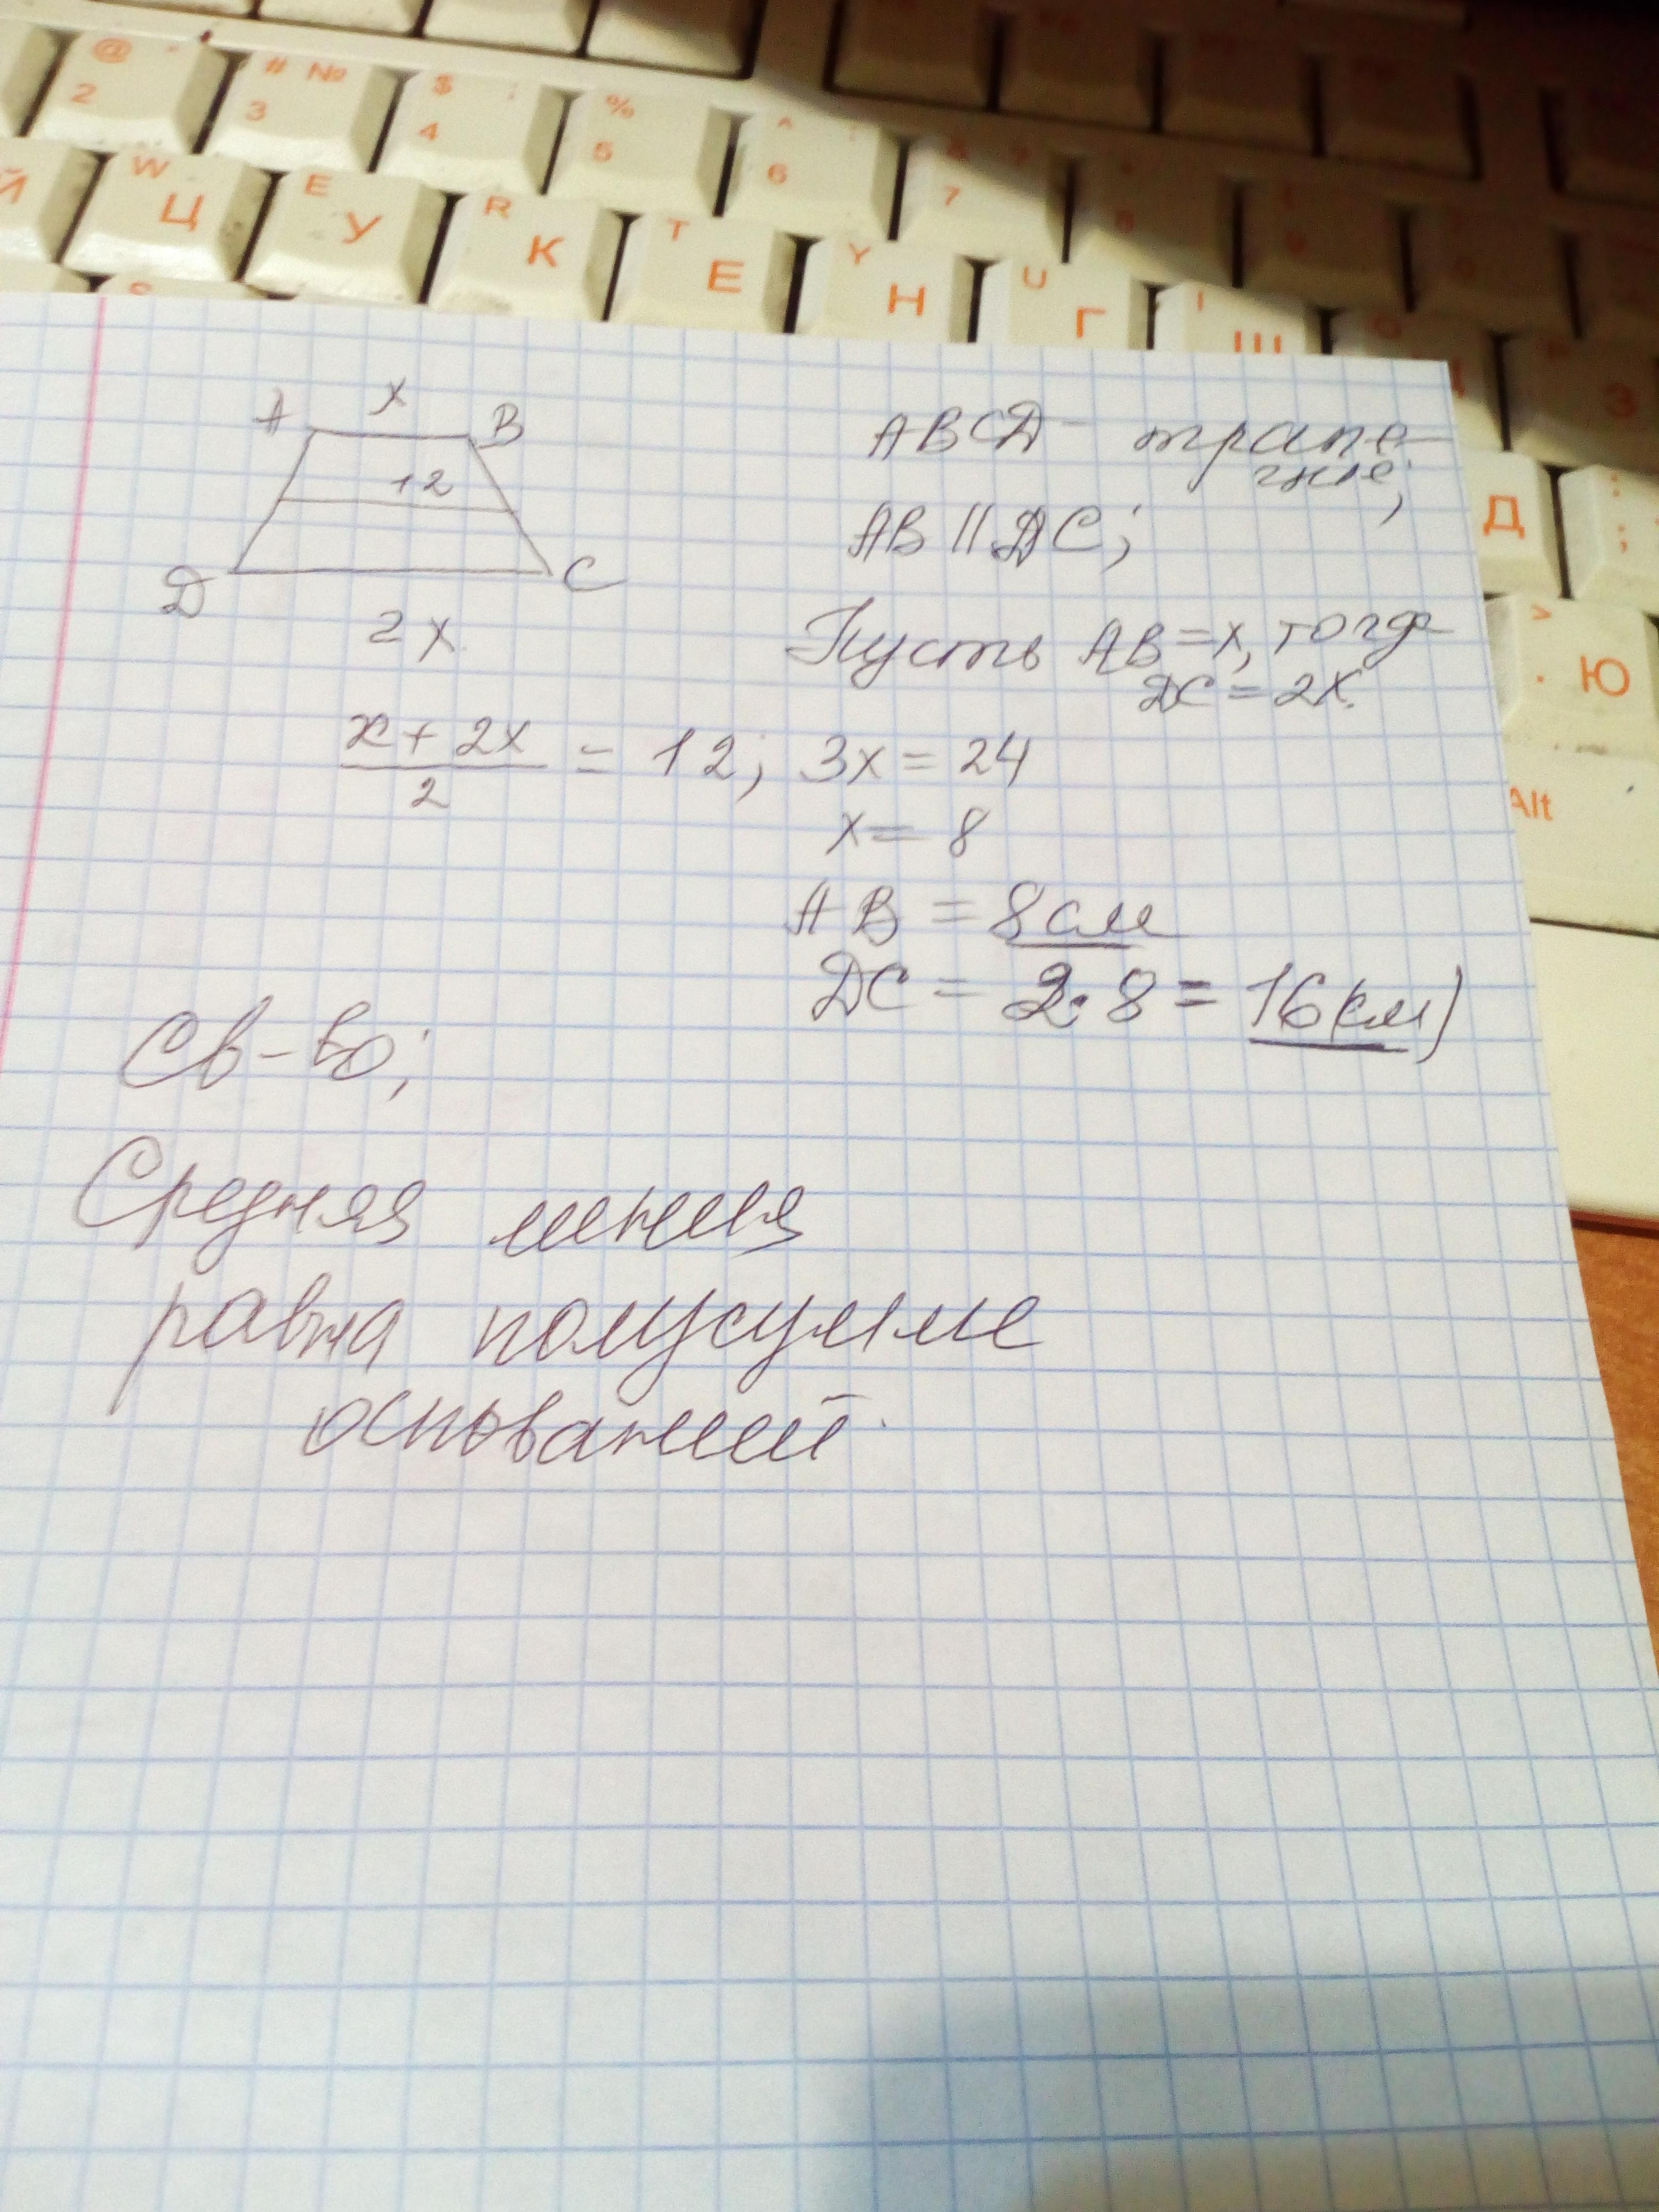 @
2
# №
3
$ ;
4
%
5
^ :
6
7
Й
W
Ц
E
У
R
К
T
Е
Y
Н
U
Г
I
Ш
З
Д
: ;
>
. Ю
Alt
A x B
12
D C
2x
ABCD - трапе-
ция;
AB || DC;
Пусть AB = x, тогда
DC = 2x.
x + 2x / 2 = 12; 3x = 24
x = 8
AB = 8 см
DC = 2·8 = 16 (см)
Св-во;
Средняя линия
равна полусумме
оснований.